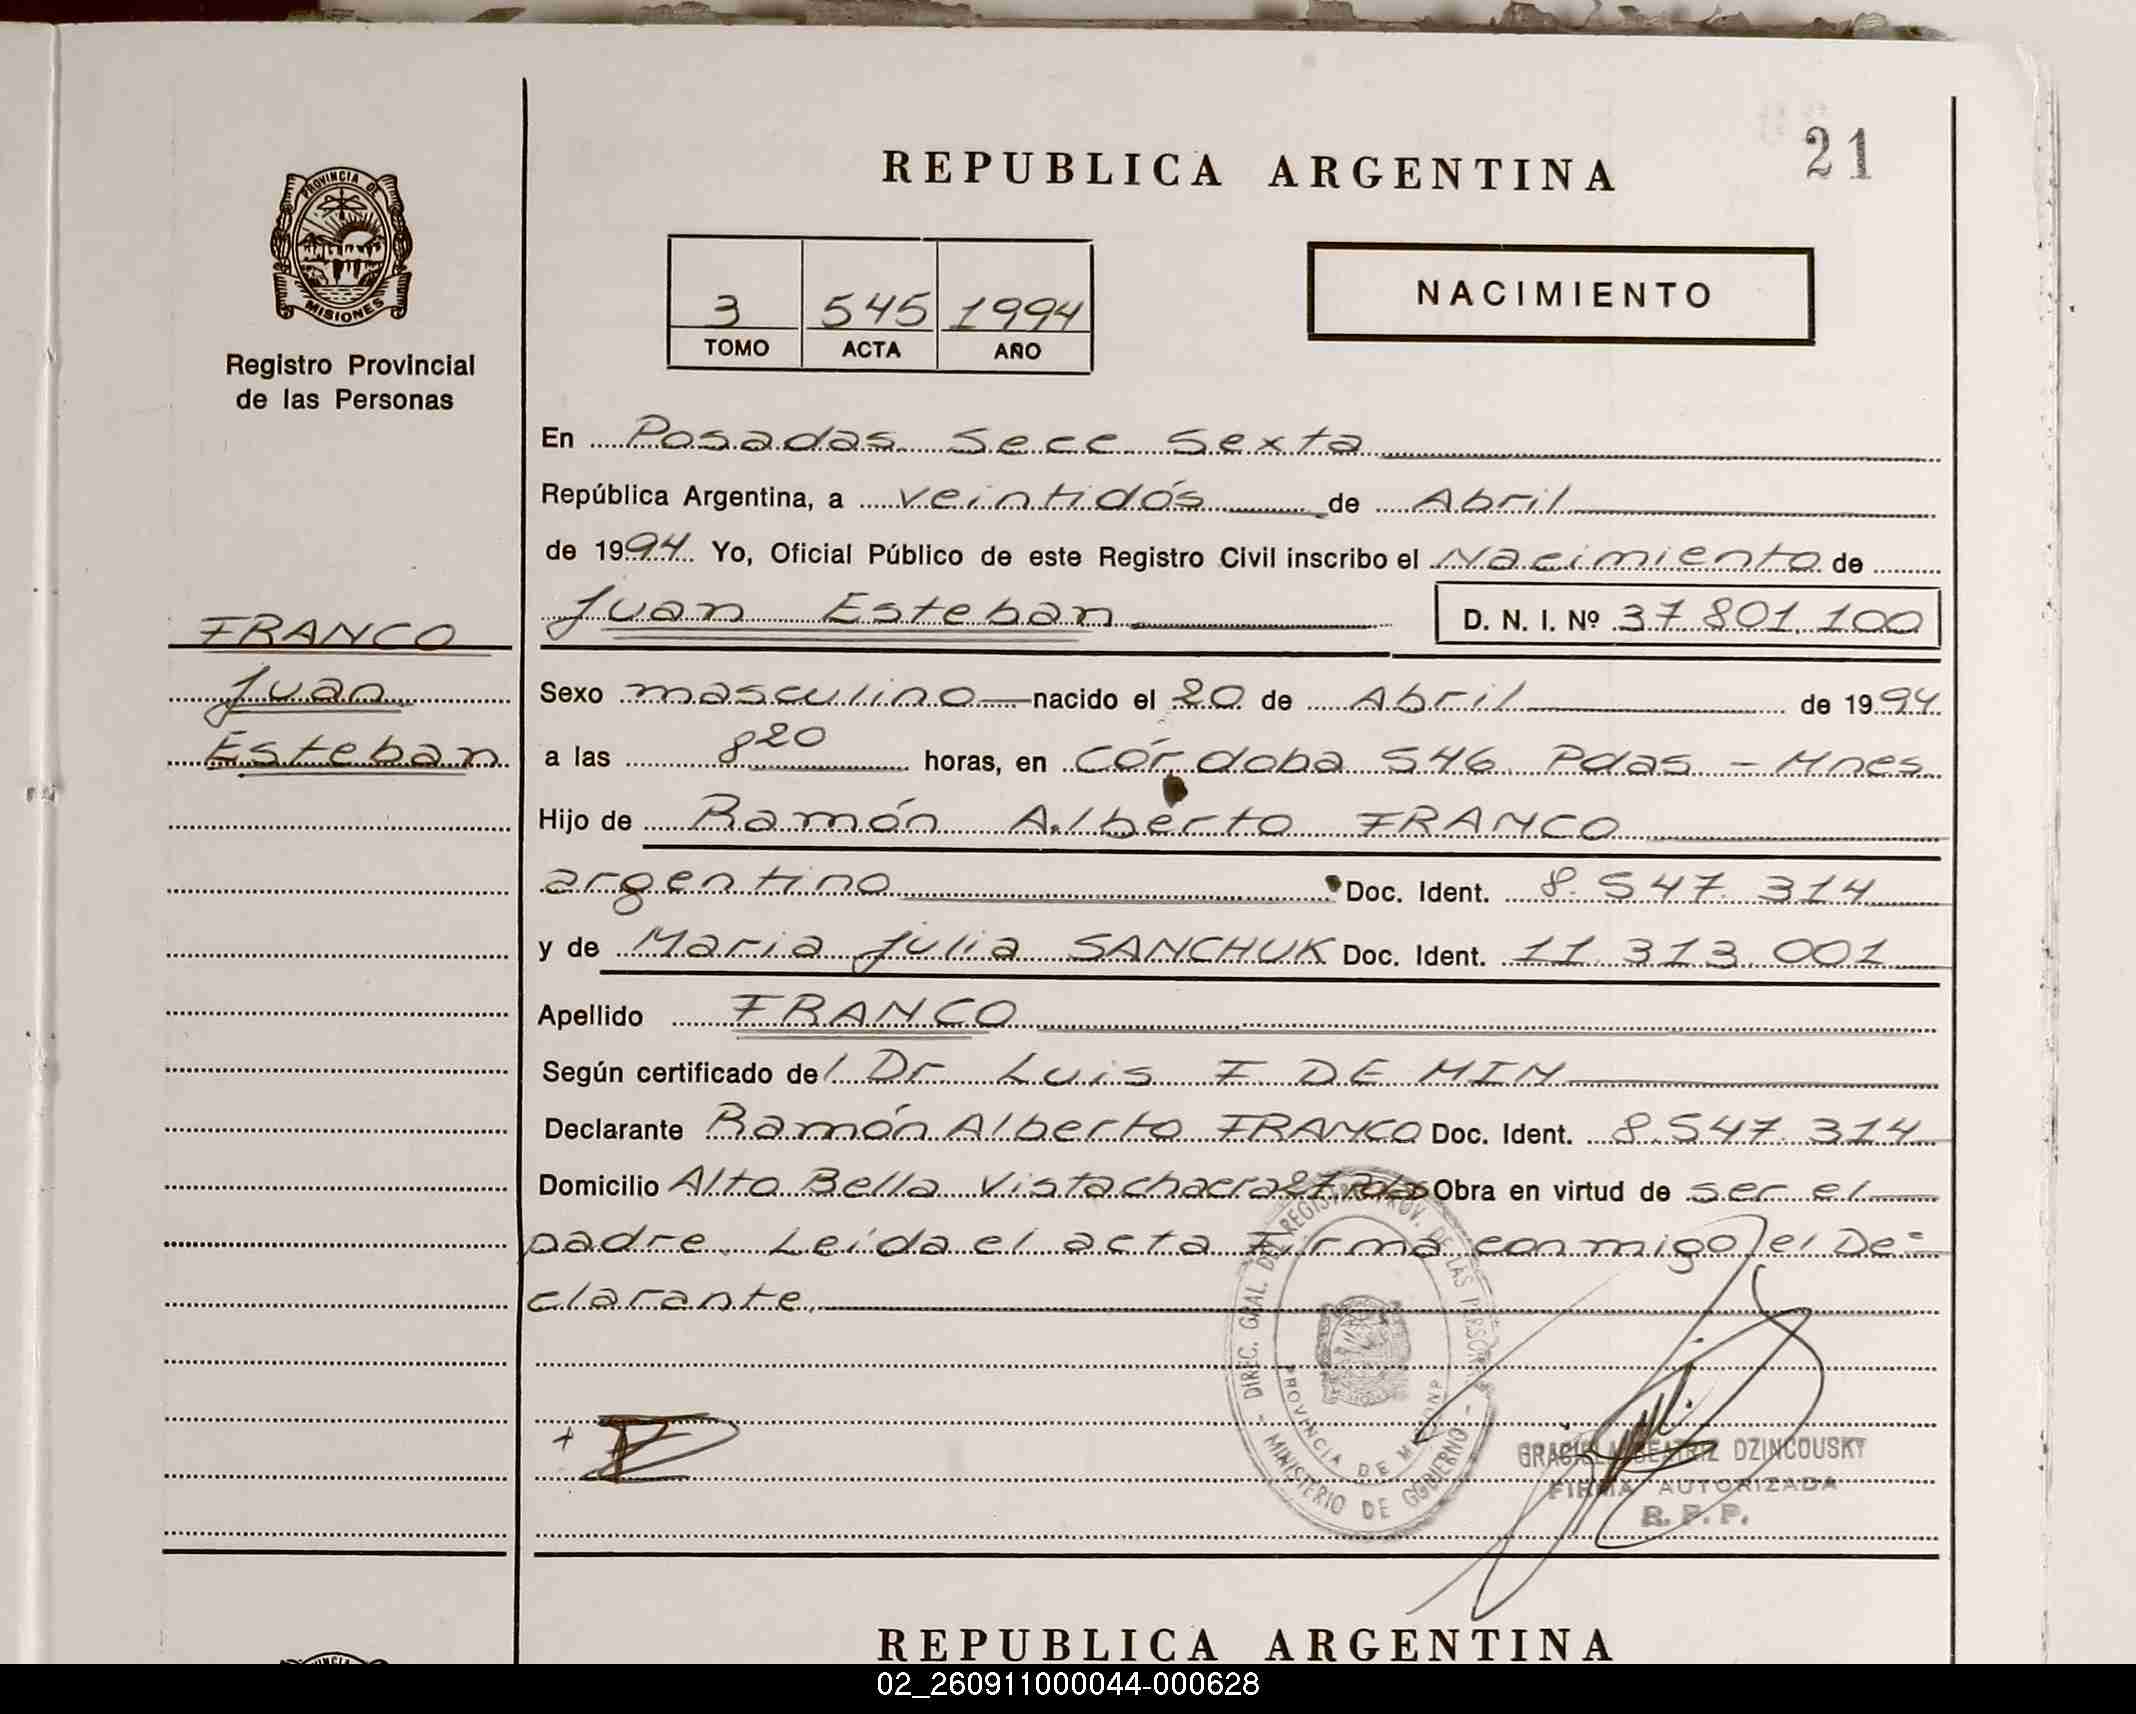 REPUBLICA ARGENTINA
21
PROVINCIA DE
MISIONES
Registro Provincial
de las Personas
3 545 1994
TOMO ACTA AÑO
NACIMIENTO
En Posadas Secc Sexta
República Argentina, a veintidós de Abril
de 1994 Yo, Oficial Público de este Registro Civil inscribo el Nacimiento de
Juan Esteban D. N. I. Nº 37.801.100
FRANCO
Juan
Esteban
Sexo masculino nacido el 20 de Abril de 1994
a las 8 20 horas, en Córdoba 546 Pdas - Mnes
Hijo de Ramón Alberto FRANCO
argentino Doc. Ident. 8.547.314
y de Maria Julia SANCHUK Doc. Ident. 11.313.001
Apellido FRANCO
Según certificado del Dr Luis F DE MIN
Declarante Ramón Alberto FRANCO Doc. Ident. 8.547.314
Domicilio Alto Bella Vista chacra 27 Pdas Obra en virtud de ser el
padre. Leída el acta Firma conmigo el De=
clarante.
DIREC. GRAL. DEL REGISTRO PROV. DE LAS PERSON
PROVINCIA DE
- MINISTERIO DE GOBIERNO -
GRACIELA BEATRIZ DZINCOUSKY
FIRMA AUTORIZADA
R. P. P.
REPUBLICA ARGENTINA
02_260911000044-000628